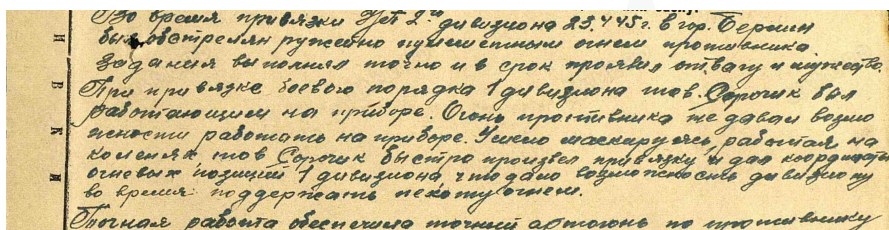 Во время привязки 2 дивизиона 23.4.45 г. в гор. Берлин
был обстрелян ружейно пулеметным огнем противника.
Задания выполнял точно и в срок проявил отвагу и мужество.
При привязке боевого порядка 1 дивизиона тов. Сорочик был
работающим на приборе. Огонь противника не давал возмо
жности работать на приборе. Умело маскируясь, работая на
коленях тов Сорочик быстро произвел привязку и дал координаты
огневых позиций 1 дивизиона что дало возможность дивизиону
во время поддержать пехоту огнем.
Точная работа обеспечила точный артогонь по противнику